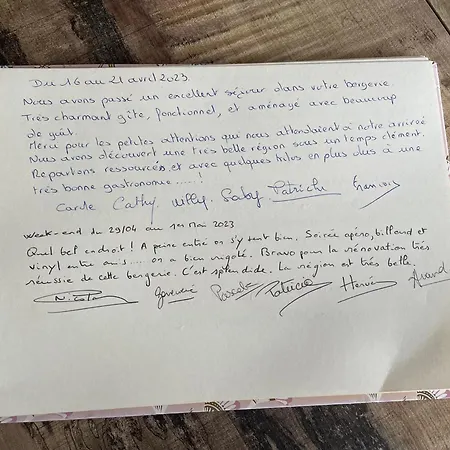 Du 16 au 21 avril 2023
Nous avons passé un excellent séjour dans votre bergerie.
Très charmant gîte, fonctionnel, et aménagé avec beaucoup
de goût.
Merci pour les petites attentions qui nous attendaient à notre arrivée
Nous avons découvert une très belle région sous un temps clément.
Repartons ressourcés, et avec quelques kilos en plus dus à une
très bonne gastronomie ......!
Carole Cathy, Willy, Gaby Patrick
Week-end du 29/04 au 1er Mai 2023
Quel bel endroit ! A peine entré on s'y sent bien. Soirée apéro, billard et
vinyl entre amis .... on a bien rigolé. Bravo pour la rénovation très
réussie de cette bergerie. C'est splendide. La région est très belle.
Pascale Patricia Hervé